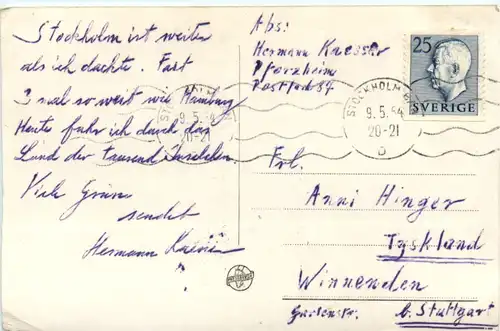 Stockholm ist weiter
als ich dachte. Fast
3 mal so weit wie Hamburg
Heute fuhr ich durch das
Land der tausend Inselchen.
Viele Grüsse
sendet
Hermann
Abs:
Hermann Kaesser
Pforzheim
Postfach 84
25
SVERIGE
STOCKHOLM
9.5.54
20-21
Frl.
Anni Hinger
Tyskland
Winnenden
Gartenstr. b. Stuttgart